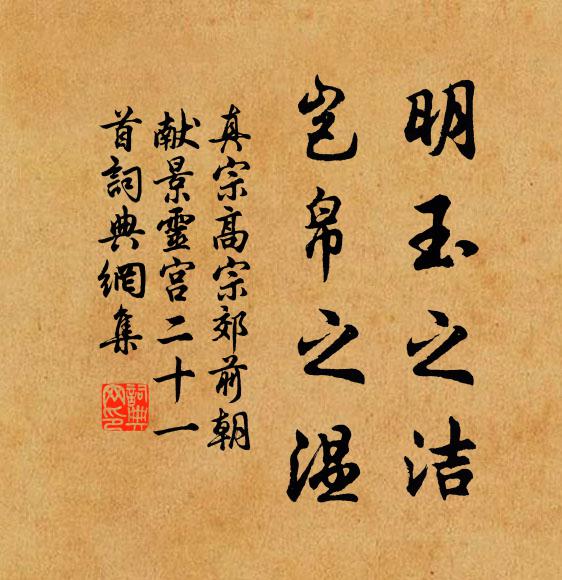 明玉之洁
岂帛之温
真宗高宗郊前朝
献景靈宫二十一
首詞典網集
詞典網印